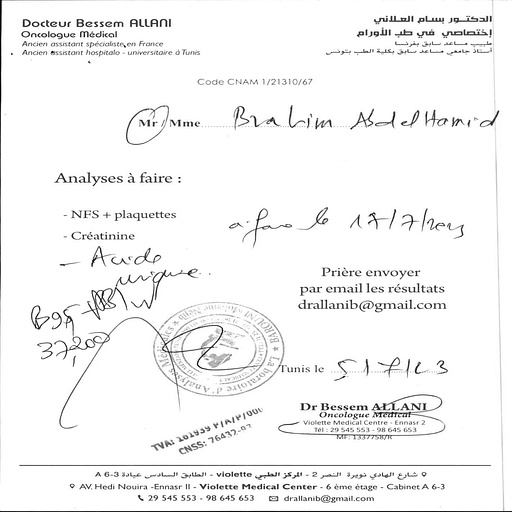 Docteur Bessem ALLANI
Oncologue Médical
Ancien assistant spécialiste en France
Ancien assistant hospitalo - universitaire à Tunis
الدكتور بسام العلاني
إختصاصي في طب الأورام
طبيب مساعد سابق بفرنسا
أستاذ جامعي مساعد سابق بكلية الطب بتونس
Code CNAM 1/21310/67
Mr / Mme Brahim Abdel Hamid
Analyses à faire :
- NFS + plaquettes
- Créatinine
- Acide urique
à faire le 17/7/2023
37,200
Prière envoyer
par email les résultats
drallanib@gmail.com
Tunis le 5/7/23
Dr Bessem ALLANI
Oncologue Médical
Violette Medical Centre - Ennasr 2
Tél : 29 545 553 - 98 645 653
MF: 1337758/R
Laboratoire d'Analyses
CNSS: 76432-03
شارع الهادي نويرة النصر 2 - المركز الطبي violette - الطابق السادس عيادة A 6-3
AV. Hedi Nouira -Ennasr II - Violette Medical Center - 6 ème étage - Cabinet A 6-3
29 545 553 - 98 645 653 drallanib@gmail.com